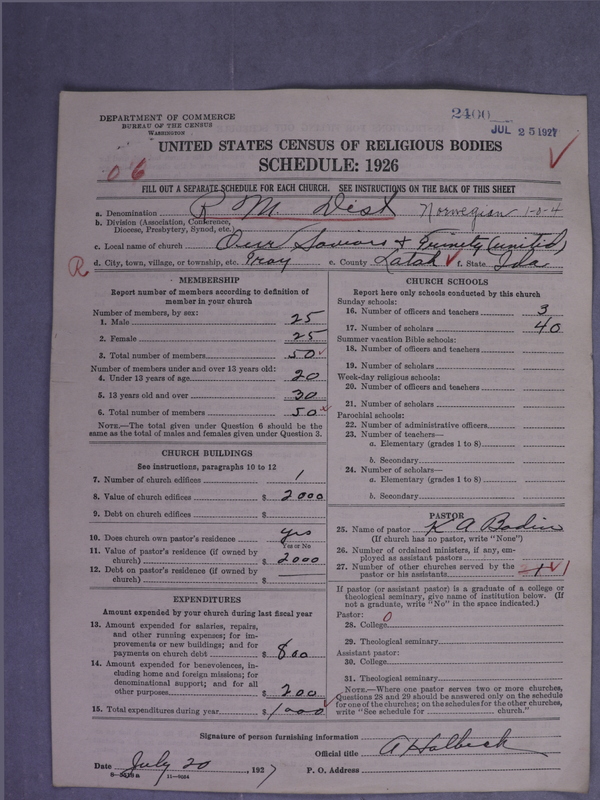 DEPARTMENT OF COMMERCE
BUREAU OF THE CENSUS
WASHINGTON
2400
JUL 25 1927
UNITED STATES CENSUS OF RELIGIOUS BODIES
SCHEDULE: 1926
06
FILL OUT A SEPARATE SCHEDULE FOR EACH CHURCH. SEE INSTRUCTIONS ON THE BACK OF THIS SHEET
a. Denomination Norwegian 1-0-4
b. Division (Association, Conference, Diocese, Presbytery, Synod, etc.)
c. Local name of church Our Saviors & Trinity (united)
R d. City, town, village, or township, etc. Troy e. County Latah f. State Ida
MEMBERSHIP
Report number of members according to definition of member in your church
Number of members, by sex:
1. Male 25
2. Female 25
3. Total number of members 50
Number of members under and over 13 years old:
4. Under 13 years of age 20
5. 13 years old and over 30
6. Total number of members 50
NOTE.—The total given under Question 6 should be the same as the total of males and females given under Question 3.
CHURCH BUILDINGS
See instructions, paragraphs 10 to 12
7. Number of church edifices 1
8. Value of church edifices $ 2000
9. Debt on church edifices $
10. Does church own pastor's residence yes
Yes or No
11. Value of pastor's residence (if owned by church) $ 2000
12. Debt on pastor's residence (if owned by church) $
EXPENDITURES
Amount expended by your church during last fiscal year
13. Amount expended for salaries, repairs, and other running expenses; for improvements or new buildings; and for payments on church debt $ 800
14. Amount expended for benevolences, including home and foreign missions; for denominational support; and for all other purposes $ 200
15. Total expenditures during year $ 1000
CHURCH SCHOOLS
Report here only schools conducted by this church
Sunday schools:
16. Number of officers and teachers 3
17. Number of scholars 40
Summer vacation Bible schools:
18. Number of officers and teachers
19. Number of scholars
Week-day religious schools:
20. Number of officers and teachers
21. Number of scholars
Parochial schools:
22. Number of administrative officers
23. Number of teachers—
a. Elementary (grades 1 to 8)
b. Secondary
24. Number of scholars—
a. Elementary (grades 1 to 8)
b. Secondary
PASTOR
25. Name of pastor K A Bodin
(If church has no pastor, write "None")
26. Number of ordained ministers, if any, employed as assistant pastors
27. Number of other churches served by the pastor or his assistants
If pastor (or assistant pastor) is a graduate of a college or theological seminary, give name of institution below. (If not a graduate, write "No" in the space indicated.)
Pastor:
28. College 0
29. Theological seminary
Assistant pastor:
30. College
31. Theological seminary
NOTE.—Where one pastor serves two or more churches, Questions 28 and 29 should be answered only on the schedule for one of the churches; on the schedules for the other churches, write "See schedule for church."
Signature of person furnishing information
Official title A Holbeck
Date July 20, 1927 P. O. Address